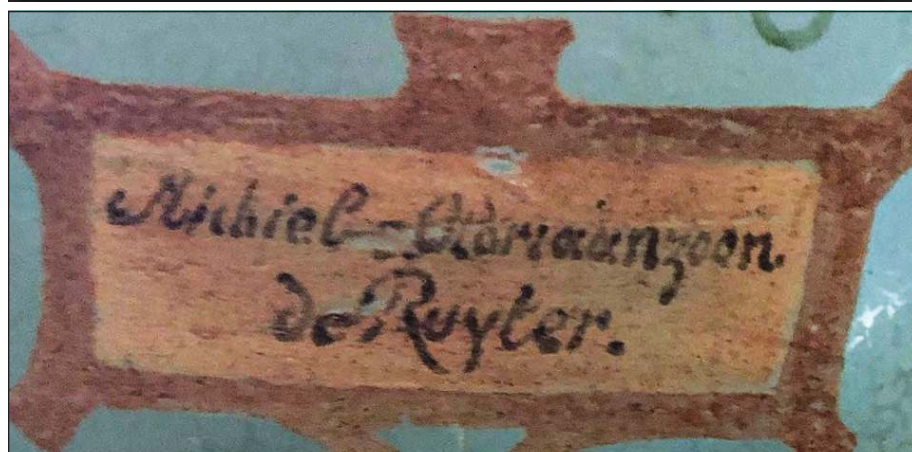 Michiel-Adriaanzoon.
de Ruyter.